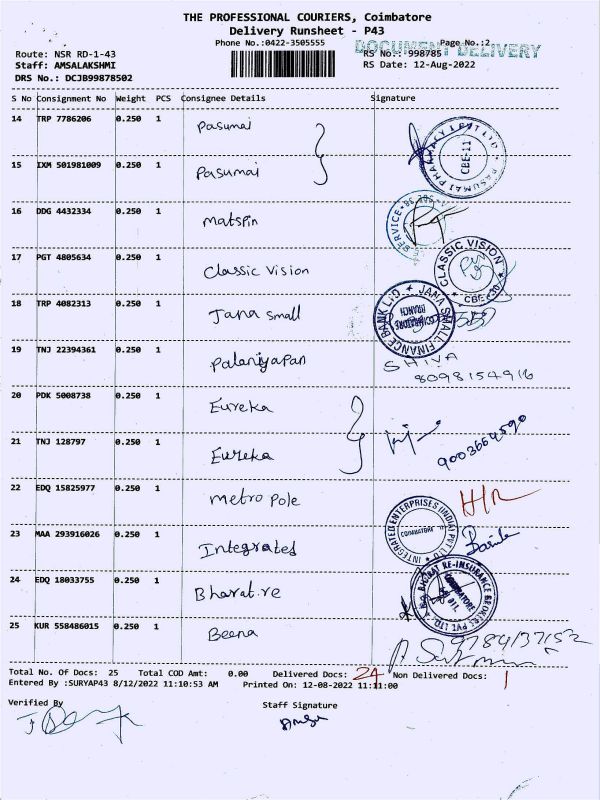 THE PROFESSIONAL COURIERS, Coimbatore
Delivery Runsheet - P43
Phone No.:0422-3505555
Page No.:2
DOCUMENT DELIVERY
Route: NSR RD-1-43
RS No.: 998785
Staff: AMSALAKSHMI
RS Date: 12-Aug-2022
DRS No.: DCJB99878502
S No Consignment No Weight PCS Consignee Details Signature
14 TRP 7786206 0.250 1 Pasumai
CBE-11
15 IXM 501981009 0.250 1 Pasumai
16 DDG 4432334 0.250 1 matspin
SERVICE
17 PGT 4805634 0.250 1 Classic Vision
CLASSIC VISION CBE-30
18 TRP 4082313 0.250 1 Jana small
JANA SMALL FINANCE BANK LTD
COIMBATORE BRANCH
19 TNJ 22394361 0.250 1 Palaniyapan
SHIVA
8098154916
20 PDK 5008738 0.250 1 Eureka
21 TNJ 128797 0.250 1 Eureka
9003664590
22 EDQ 15825977 0.250 1 metro pole
23 MAA 293916026 0.250 1 Integrated
INTEGRATED ENTERPRISES (INDIA) PVT LTD
COIMBATORE
24 EDQ 18033755 0.250 1 Bharat.re
BHARAT RE-INSURANCE BROKERS PVT. LTD.
25 KUR 558486015 0.250 1 Beena
9784137152
Total No. Of Docs: 25 Total COD Amt: 0.00 Delivered Docs: 24 Non Delivered Docs: 1
Entered By :SURYAP43 8/12/2022 11:10:53 AM Printed On: 12-08-2022 11:11:00
Verified By
Staff Signature